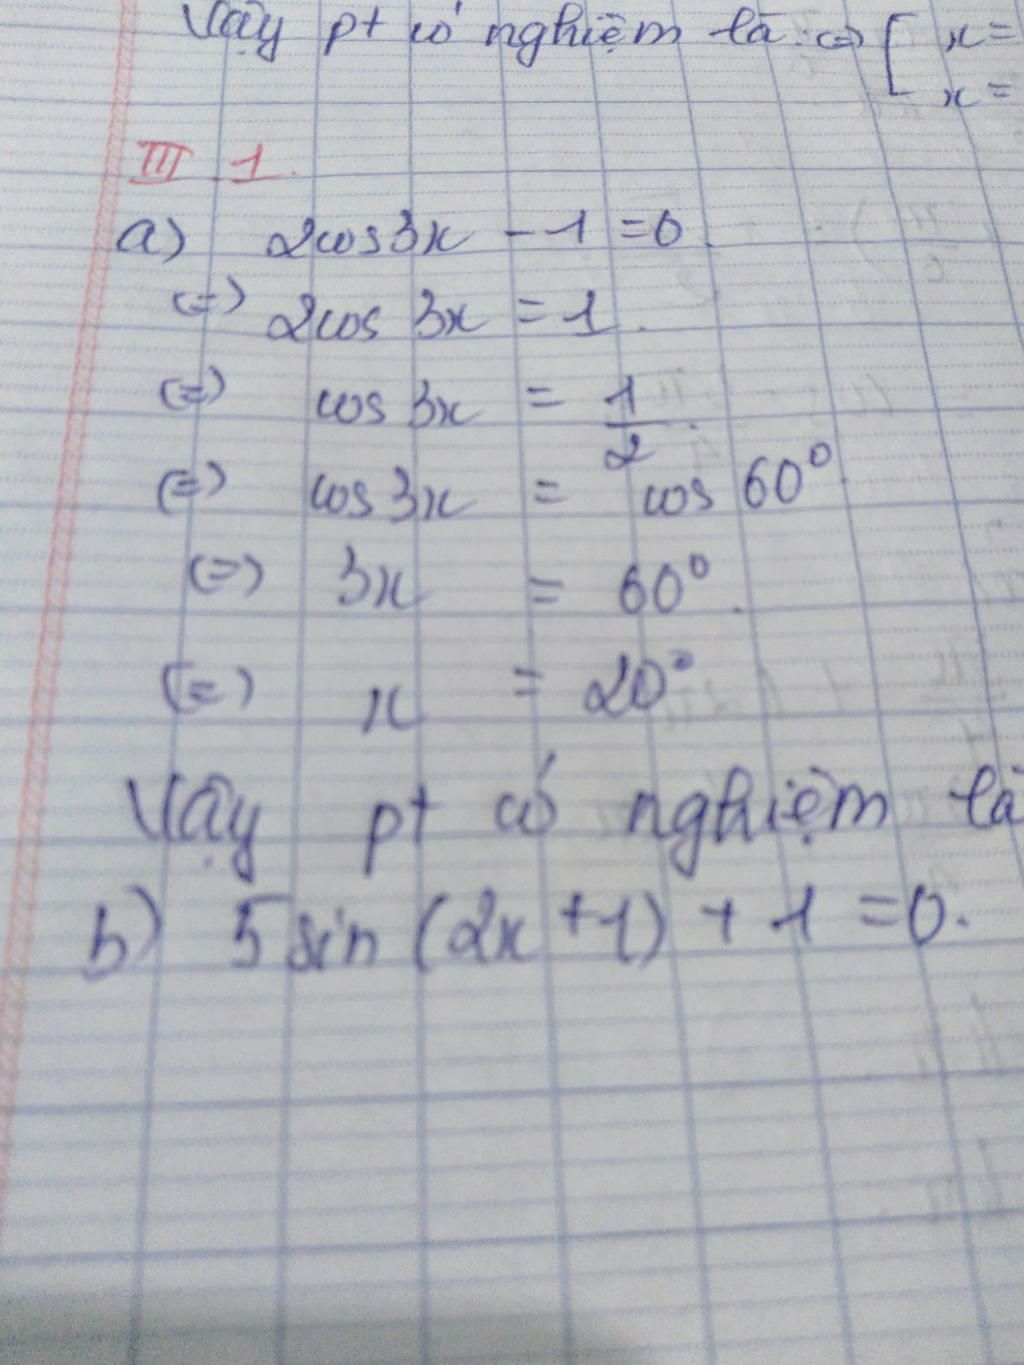 Vậy pt có nghiệm là: <=> [ x =
x =
III 1.
a) 2cos3x - 1 = 0.
(=) 2cos 3x = 1.
(=) cos 3x = 1/2.
(=) cos 3x = cos 60°.
(=) 3x = 60°.
(=) x = 20°
Vậy pt có nghiệm là
b) 5sin (2x + 1) + 1 = 0.